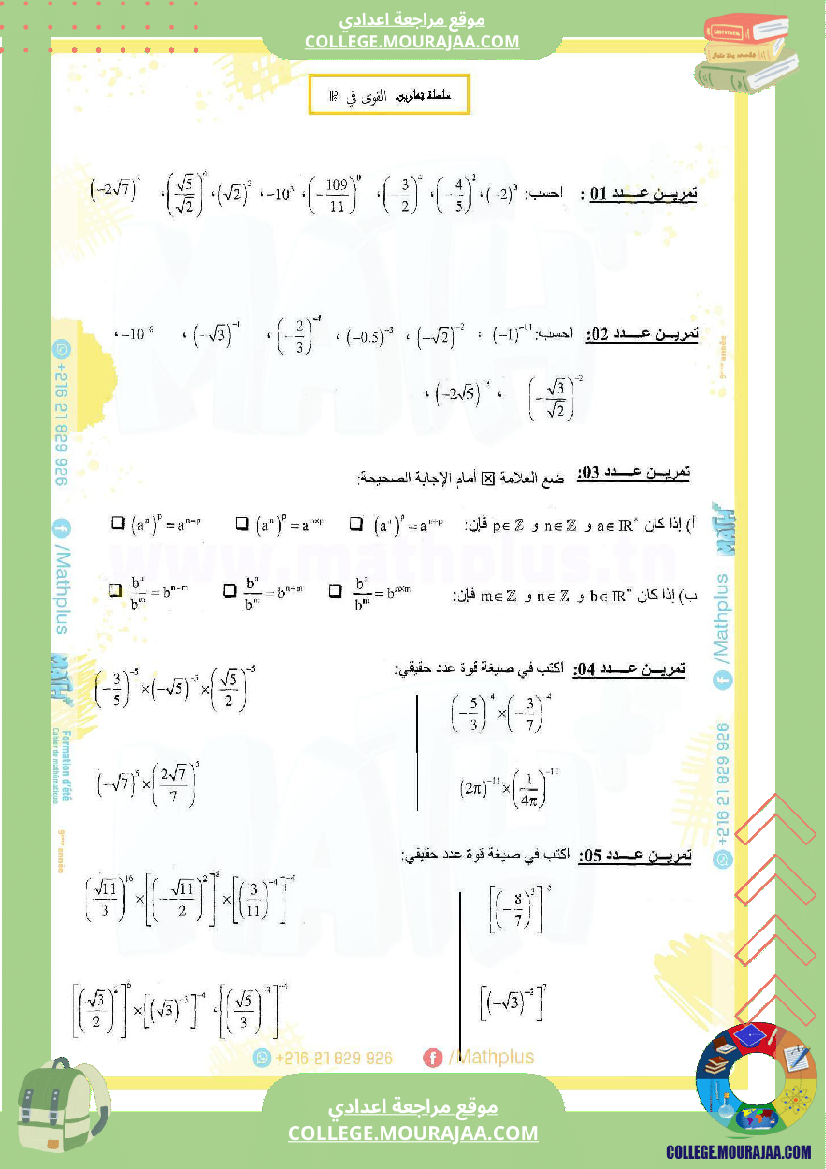 موقع مراجعة اعدادي
COLLEGE.MOURAJAA.COM
سلسلة تمارين القوى في ℝ
تمريـن عـــدد 01 : احسب: (-2)³ ، (-4/5)² ، (-3/2)⁴ ، (-109/11)⁰ ، -10³ ، (√2)² ، (√5/√2)⁴ ، (-2√7)
تمريـن عـــدد 02: احسب: (-1)⁻¹¹ ، (-√2)⁻² ، (-0.5)⁻³ ، (-2/3)⁻⁴ ، (-√3)⁻¹ ، -10⁻⁶ ،
(-√3/√2)⁻² ، (-2√5) ،
تمريـن عـــدد 03: ضع العلامة ☒ أمام الإجابة الصحيحة:
أ) إذا كان a∈ℝ* و n∈ℤ و p∈ℤ فإن: ☐ (aⁿ)ᵖ = aⁿ⁺ᵖ ☐ (aⁿ)ᵖ = aⁿˣᵖ ☐ (aⁿ)ᵖ = aⁿ⁻ᵖ
ب) إذا كان b∈ℝ* و n∈ℤ و m∈ℤ فإن: ☐ bⁿ/bᵐ = bⁿˣᵐ ☐ bⁿ/bᵐ = bⁿ⁺ᵐ ☐ bⁿ/bᵐ = bⁿ⁻ᵐ
تمريـن عـــدد 04: اكتب في صيغة قوة عدد حقيقي:
(-5/3)⁻⁴×(-3/7)⁻⁴
(-3/5)⁻⁵×(-√5)⁻⁵×(√5/2)⁻⁵
(2π)⁻¹¹×(1/4π)⁻¹¹
(-√7)⁵×(2√7/7)⁵
تمريـن عـــدد 05: اكتب في صيغة قوة عدد حقيقي:
[(-8/7)³]
(√11/3)¹⁶×[(-√11/2)⁻²]⁸×[(3/11)⁻⁴]⁻⁴
[(-√3)⁻²]⁷
[(√3/2)²]⁶×[(√3)⁻³]⁻⁴ ، [(√5/3)⁻³]⁻⁴
www.mathplus.tn
+216 21 829 926
/Mathplus
MATH
Formation d'été
Cahier de mathématiques
9ème année
9ème année
MATH
/Mathplus
+216 21 829 926
+216 21 829 926 /Mathplus
موقع مراجعة اعدادي
COLLEGE.MOURAJAA.COM
COLLEGE.MOURAJAA.COM